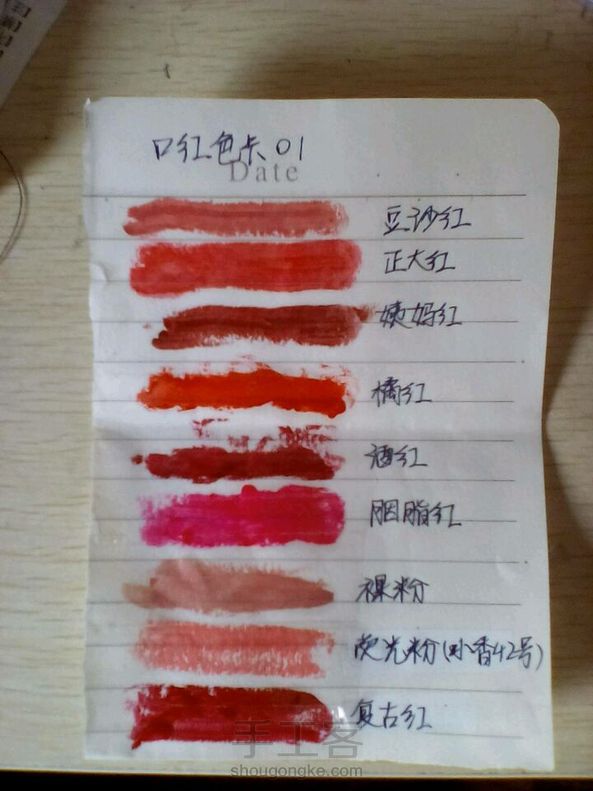 口红色卡01
Date
豆沙红
正大红
姨妈红
橘红
酒红
胭脂红
裸粉
荧光粉(小香42号)
复古红
手工客
shougongke.com